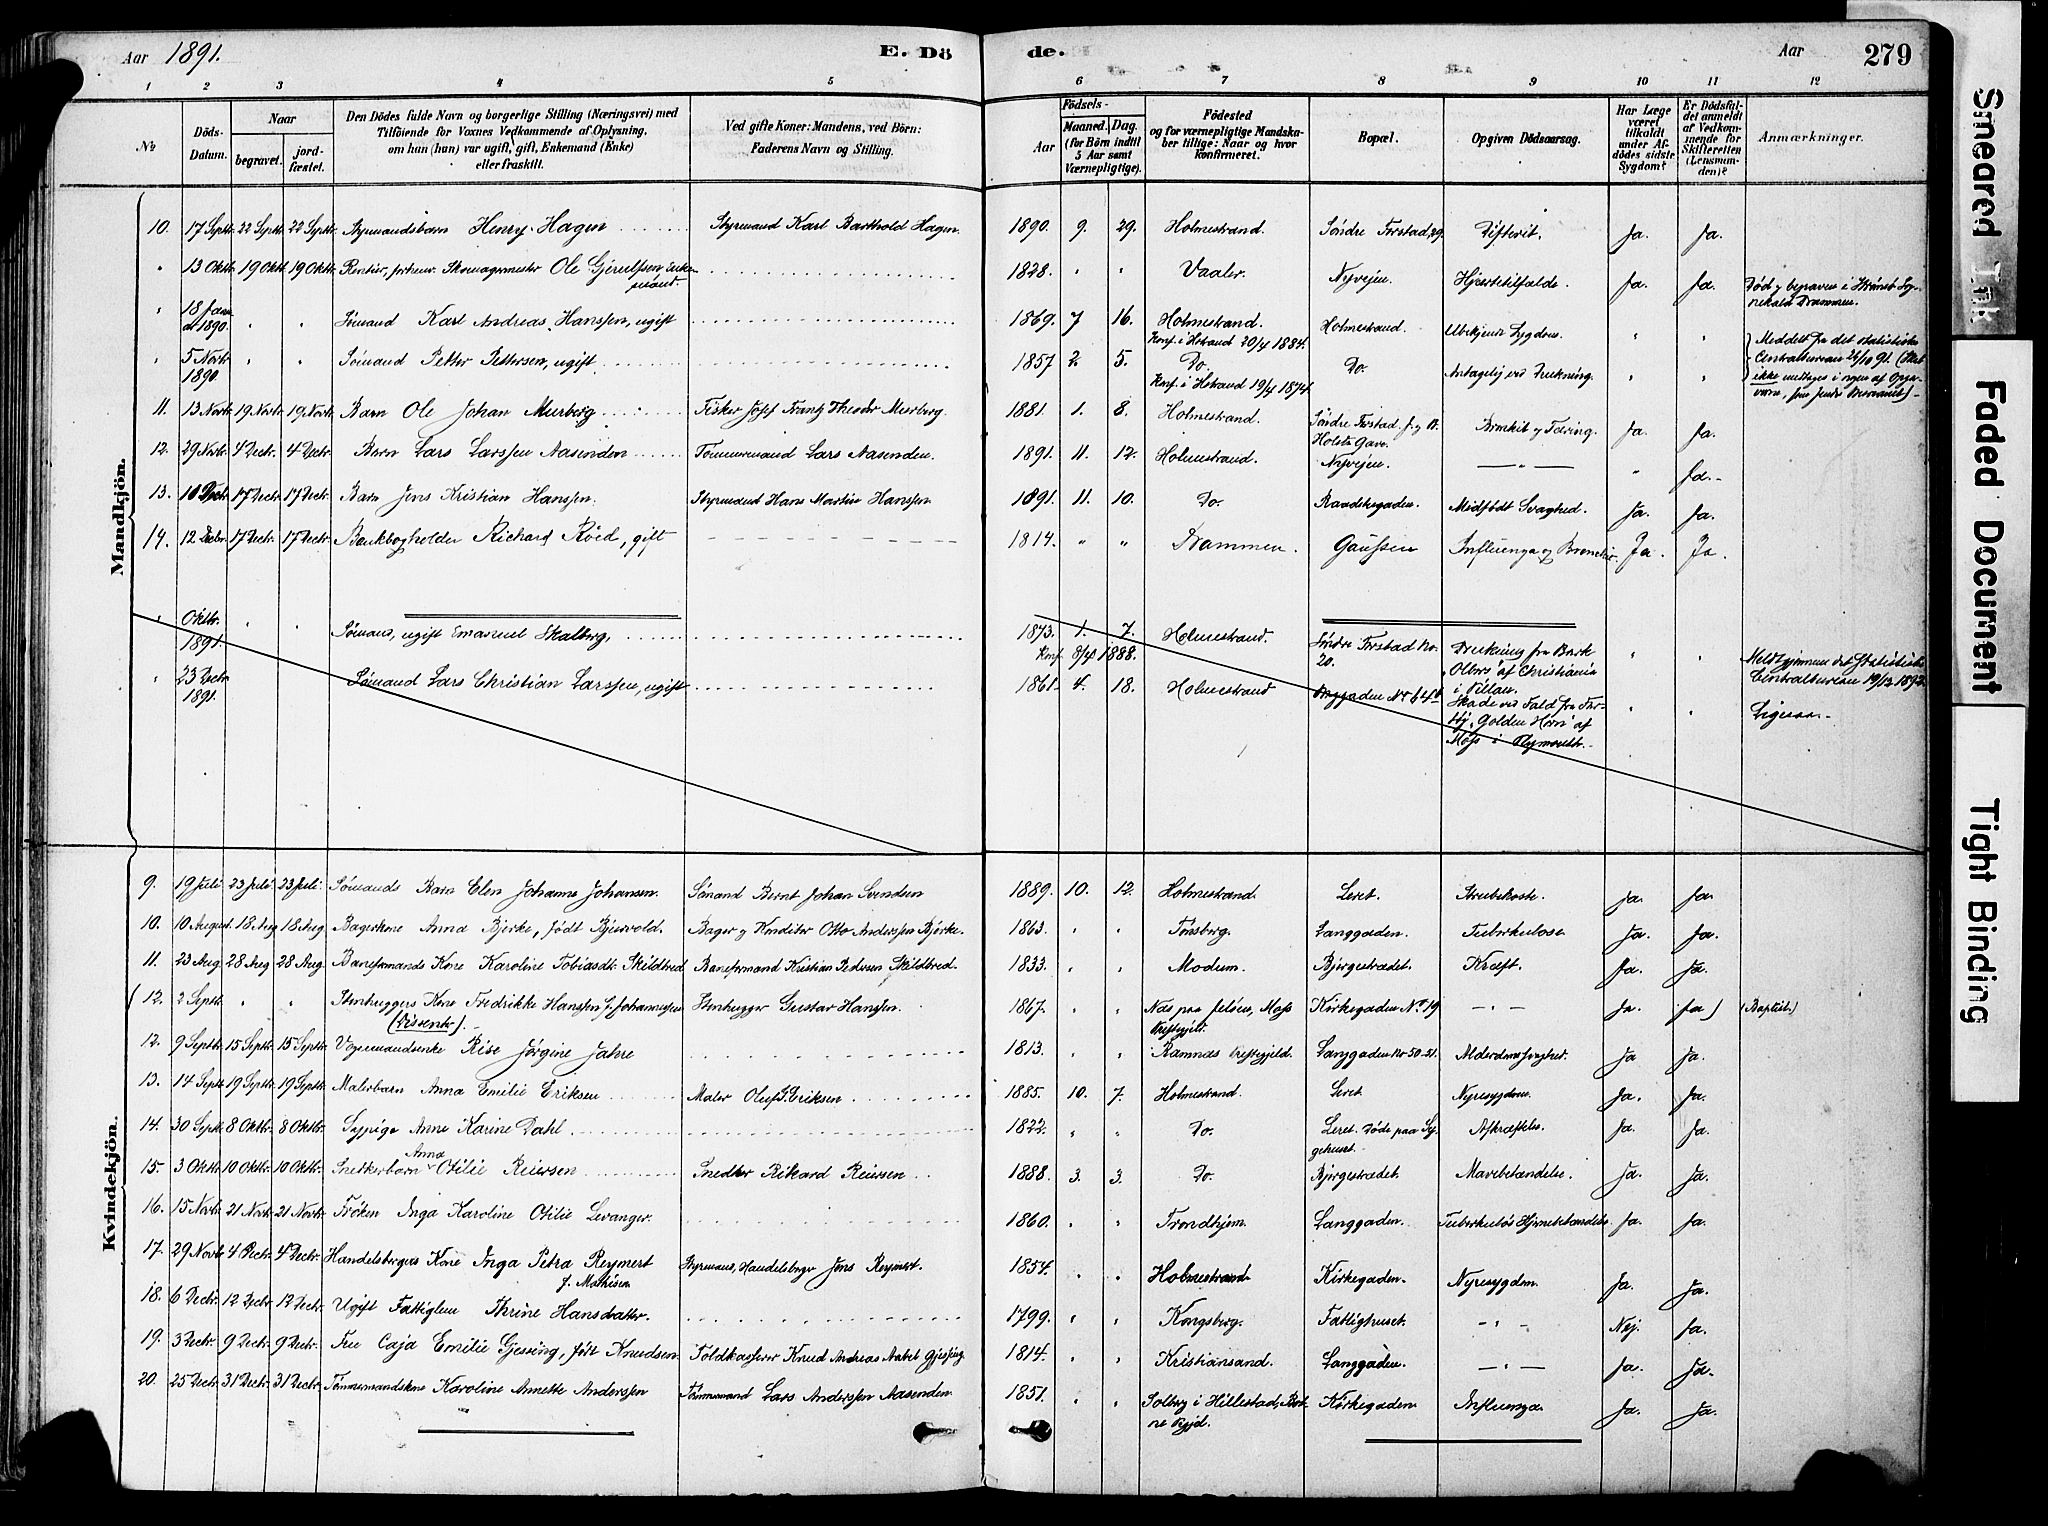 Aar 1891. E. Dö de. Aar 279
1 2 3 4 5 6 7 8 9 10 11 12
No
Döds-Datum.
Naar
begravet.
jord-fæstet.
Den Dödes fulde Navn og borgerlige Stilling (Næringsvei) med
Tilföiende for Voxnes Vedkommende af Oplysning,
om han (hun) var ugift, gift, Enkemand (Enke)
eller fraskilt.
Ved gifte Koner: Mandens, ved Börn:
Faderens Navn og Stilling.
Födsels-
Aar
Maaned.
Dag.
(for Börn indtil
5 Aar samt
Værnepligtige).
Födested
og for værnepligtige Mandska-
ber tillige: Naar og hvor
konfirmeret.
Bopæl.
Opgiven Dödsaarsag.
Har Læge
været
tilkaldt
under Af-
dödes sidste
Sygdom?
Er Dödsfal-
det anmeldt
af Vedkom-
mende for
Skifteretten
(Lensman-
den)?
Anmærkninger.
Mandkjön.
10. 17 Septr. 22 Septr. 22 Septr. Styrmandsbarn Henry Hagen Styrmand Karl Barthold Hagen. 1890. 9. 29. Holmestrand. Söndre Forstad, 29. Difterit. Ja. Ja.
" 13 Oktr. 19 Oktr. 19 Oktr. Rentier, forhenv. Skomagermester Ole Gjerulfsen, Enke-
mand. 1828. " " Vaaler. Nyvejen. Hjertetilfælde. Ja. Ja. Död og begraven i Strömsö Sog-
nekald Drammen.
" 18 Jan. 1890. " " Sömand Karl Andreas Hanssen, ugift 1869. 7 16. Holmestrand. Holmestrand. Ubekjendt Sygdom. " "
Konf. i Hstrand 20/4 1884.
" 5 Novbr 1890. " " Sömand Petter Pettersen, ugift 1857 2. 5. Do. Do. Antagelig ved Drukning. " " Meddelt fra det statistiske
Centralbureau 26/10 91. (Skal
ikke medtages i nogen af Opga-
verne,
Konf. i Hstrand 19/4 1874.
11. 13 Novbr 19 Novbr. 19 Novbr. Barn Ole Johan Murberg Fisker Josef Frantz Theodor Murberg. 1881. 1. 8. Holmestrand. Söndre Forstad
Holsts Gave. Bronkit og Tæring. Ja. Ja.
12. 29 Novbr. 4 Decbr. 4 Decbr. Barn Lars Larssen Aasenden Tömmermand Lars Aasenden. 1891. 11. 12. Holmestrand. Nyvejen. — " — " Ja.
13. 10 Decbr. 17 Decbr. 17 Decbr. Barn Jens Kristian Hanssen. Styrmand Hans Martin Hanssen 1891. 11. 10. Do. Raadhusgaden. Medfödt Svaghed. Ja. Ja.
14. 12 Decbr. 17 Decbr. 17 Decbr. Bankbogholder Richard Röed, gift 1814. " " Drammen. Gaussen Influenza og Bronchit. Ja. Ja.
" Oktbr. 1891. " " Sömand, ugift Emanuel Skalberg, 1873. 1. 7. Holmestrand. Söndre Forstad No.
20. Drukning fra Bark
"Olbers" af Christiania
i Pillau. " " Meldt gjennem det Statistiske
Centralbureau 19/12 1892.
Konf. 8/4 1888.
" 23 Decbr. 1891. Sömand Lars Christian Larssen, ugift 1861. 4. 18. Holmestrand Langgaden No 64b Skade ved Fald fra Far-
töj "Golden Horn" af
Moss i Plymouth. " " Ligesaa.
Kvindekjön.
9. 19 Juli 23 Juli. 23 Juli. Sömands Barn Elen Johanne Johansen. Sömand Bernt Johan Svendsen 1889. 10. 12. Holmestrand. Leret. Strubehoste. Ja. Ja.
10. 10 August. 18 Aug 18 Aug. Bagerkone Anna Bjerke, født Bjervold. Bager og Konditor Otto Anderssen Bjerke. 1863. " " Tönsberg. Langgaden. Tuberkulose Ja. Ja.
11. 23 Aug. 28 Aug 28 Aug. Baneformands Kone Karoline Tobiasdt. Skildbred Baneformand Kristian Pedersen Skildbred. 1833. " " Modum. Bjergestrædet. Kræft. Ja. Ja.
(12. 2 Septr. " " Stenhuggers Kone Fredrikke Hanssen f. Johannessen Stenhugger Gustav Hansen. 1867. " " Næs paa Jelöen, Moss
Prestegjeld. Kirkegaden No 19 — " — Ja. Ja) (Baptist.)
(Dissenter).
12. 9 Septr. 15 Septr. 15 Septr. Vognmandsenke Rise Jørgine Jahre 1813. " " Ramnæs Prestegjeld. Langgaden No 50-51. Alderdomssvaghed. Ja Ja.
13. 14 Septr. 19 Septr. 19 Septr. Malerbarn Anna Emilie Eriksen Maler Oluf G. Eriksen 1885. 10. 7. Holmestrand. Leret. Nyresygdom. Ja. Ja.
14. 30 Septr. 8 Oktbr. 8 Oktbr. Sypige Anne Karine Dahl 1822. " " Do. Leret. Döde paa Sy-
gehuset. Afkræftelse. Ja. Ja.
15. 3 Oktbr. 10 Oktbr. 10 Oktbr. Snedkerbarn Anna Otilie Reiersen Snedker Rikard Reiersen 1888. 3. 3. Do. Bjergestrædet. Mavebetændelse. Ja. Ja.
16. 15 Novbr. 21 Novbr. 21 Novbr. Fröken Inga Karoline Otilie Levanger. 1860. " " Trondhjem. Langgaden. Tuberkulös Hjernebetændelse. Ja. Ja.
17. 29 Novbr. 4 Decbr. 4 Decbr. Handelsborgers Kone Inga Petra Reymert
f. Mathisen Styrmand, Handelsborger Jens Reymert. 1854. " " Holmestrand. Kirkegaden. Nyresygdom. Ja. Ja.
18. 6 Decbr. 12 Decbr. 12 Decbr. Ugift Fattiglem Thrine Hansdatter. 1799. " " Kongsberg. Fattighuset. — " — Nej. Ja.
19. 3 Decbr. 9 Decbr. 9 Decbr. Fru Caja Emilie Gjessing, född Knudsen. Toldkasserer Knud Andreas Aabel Gjessing. 1814. " " Kristiansand. Langgaden. — " — Ja. Ja.
20. 25 Decbr. 31 Decbr. 31 Decbr. Tömmermandskone Karoline Annette Anderssen Tömmermand Lars Anderssen Aasenden 1851. " " Solberg i Hillestad, Bot-
ne Pgjd. Kirkegaden. Influenza. Ja. Ja.
Smeared Ink
Faded Document
Tight Binding